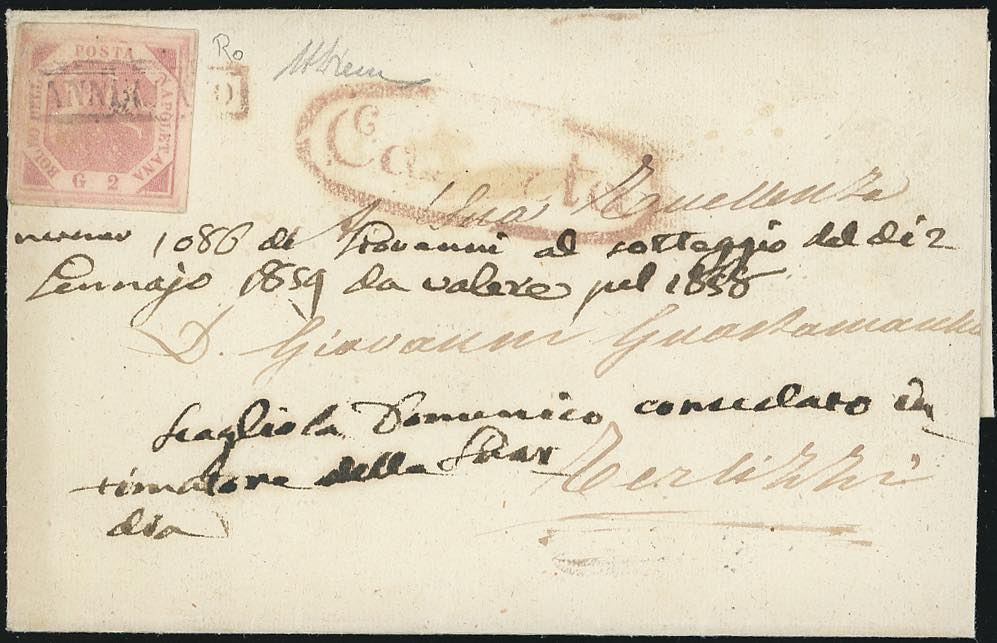 POSTA
NAPOLETANA
BOLLO DELLA
G 2
ANNULLATO
Ro
Caserta
Sua Eccellenza
numero 1086 di Giovanni al sorteggio del dì 2
Gennajo 1859 da valere pel 1858
D. Giovanni
Scagliola Domenico consedato in
timatore della Guar
dia
Terlizzi